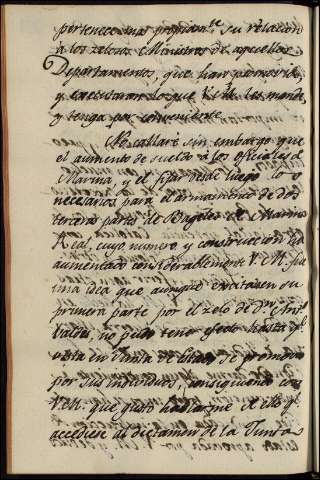 pertenece mas propiam.te su relacion
a los zelosos Ministros de aquellos
Departamentos, que han promovido,
y executaran lo que V.M. les mande,
y tenga por conveniente.
No callaré sin embargo que
el aumento de sueldo á los oficiales de
Marina, y el fijar desde luego lo
necesario para el armamento de dos
terceras partes de Bageles de Marina
Real, cuyo numero y construccion ha
aumentado considerablemente V.M. fue
una idea que aunque excitaron su
primera parte por el zelo de D.n
no pudo tener efecto hasta q.e
vista en Junta de Estado se promovio
por sus individuos, consiguiendo con
V.M. que gustó hablarme de ello q.e
accediese al dictamen de la Junta